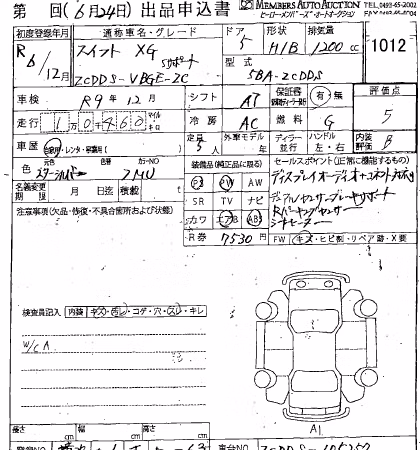 第 回(6月24日)出品申込書
MEMBERS AUTO AUCTION
ヒーローメンバーズ・オートオークション
TEL.0493-65-2002
初度登録年月 通称車名・グレード ドア 形状 排気量
R6/12 スイフト XG 5 H/B 1200 cc 1012
Sサポート
ZCDDS-VBGE-ZC 型式 5BA-ZCDDS
車検 R9年12月 シフト AT 保証書 有・無 評価点
走行 10460 マイル キロ 冷房 AC 燃料 G 5
車歴 自家用・レンタ・営業用( ) 定員 5人 外車モデル 年 ディーラー 並行 ハンドル 左・右 内装評価 B
元色 カラーNO
色 スターシルバー ZMU
装備品(純正品に限る) セールスポイント(正常に機能するもの)
PS PW AW
SR TV ナビ
カワ エアB ABS
名義変更期限 月 日迄 積載 kg
R券 7530円 FW (キズ・ヒビ割・リペア跡・X要
注意事項(欠品・修復・不具合箇所および状態)
ディスプレイオーディオ
シートヒーター
検査員記入 内装 キズ・汚レ・コゲ・穴・スレ・キレ
W/C A
A1
長さ cm 幅 cm 高さ cm
登録NO 車台NO ZCDDS-105250